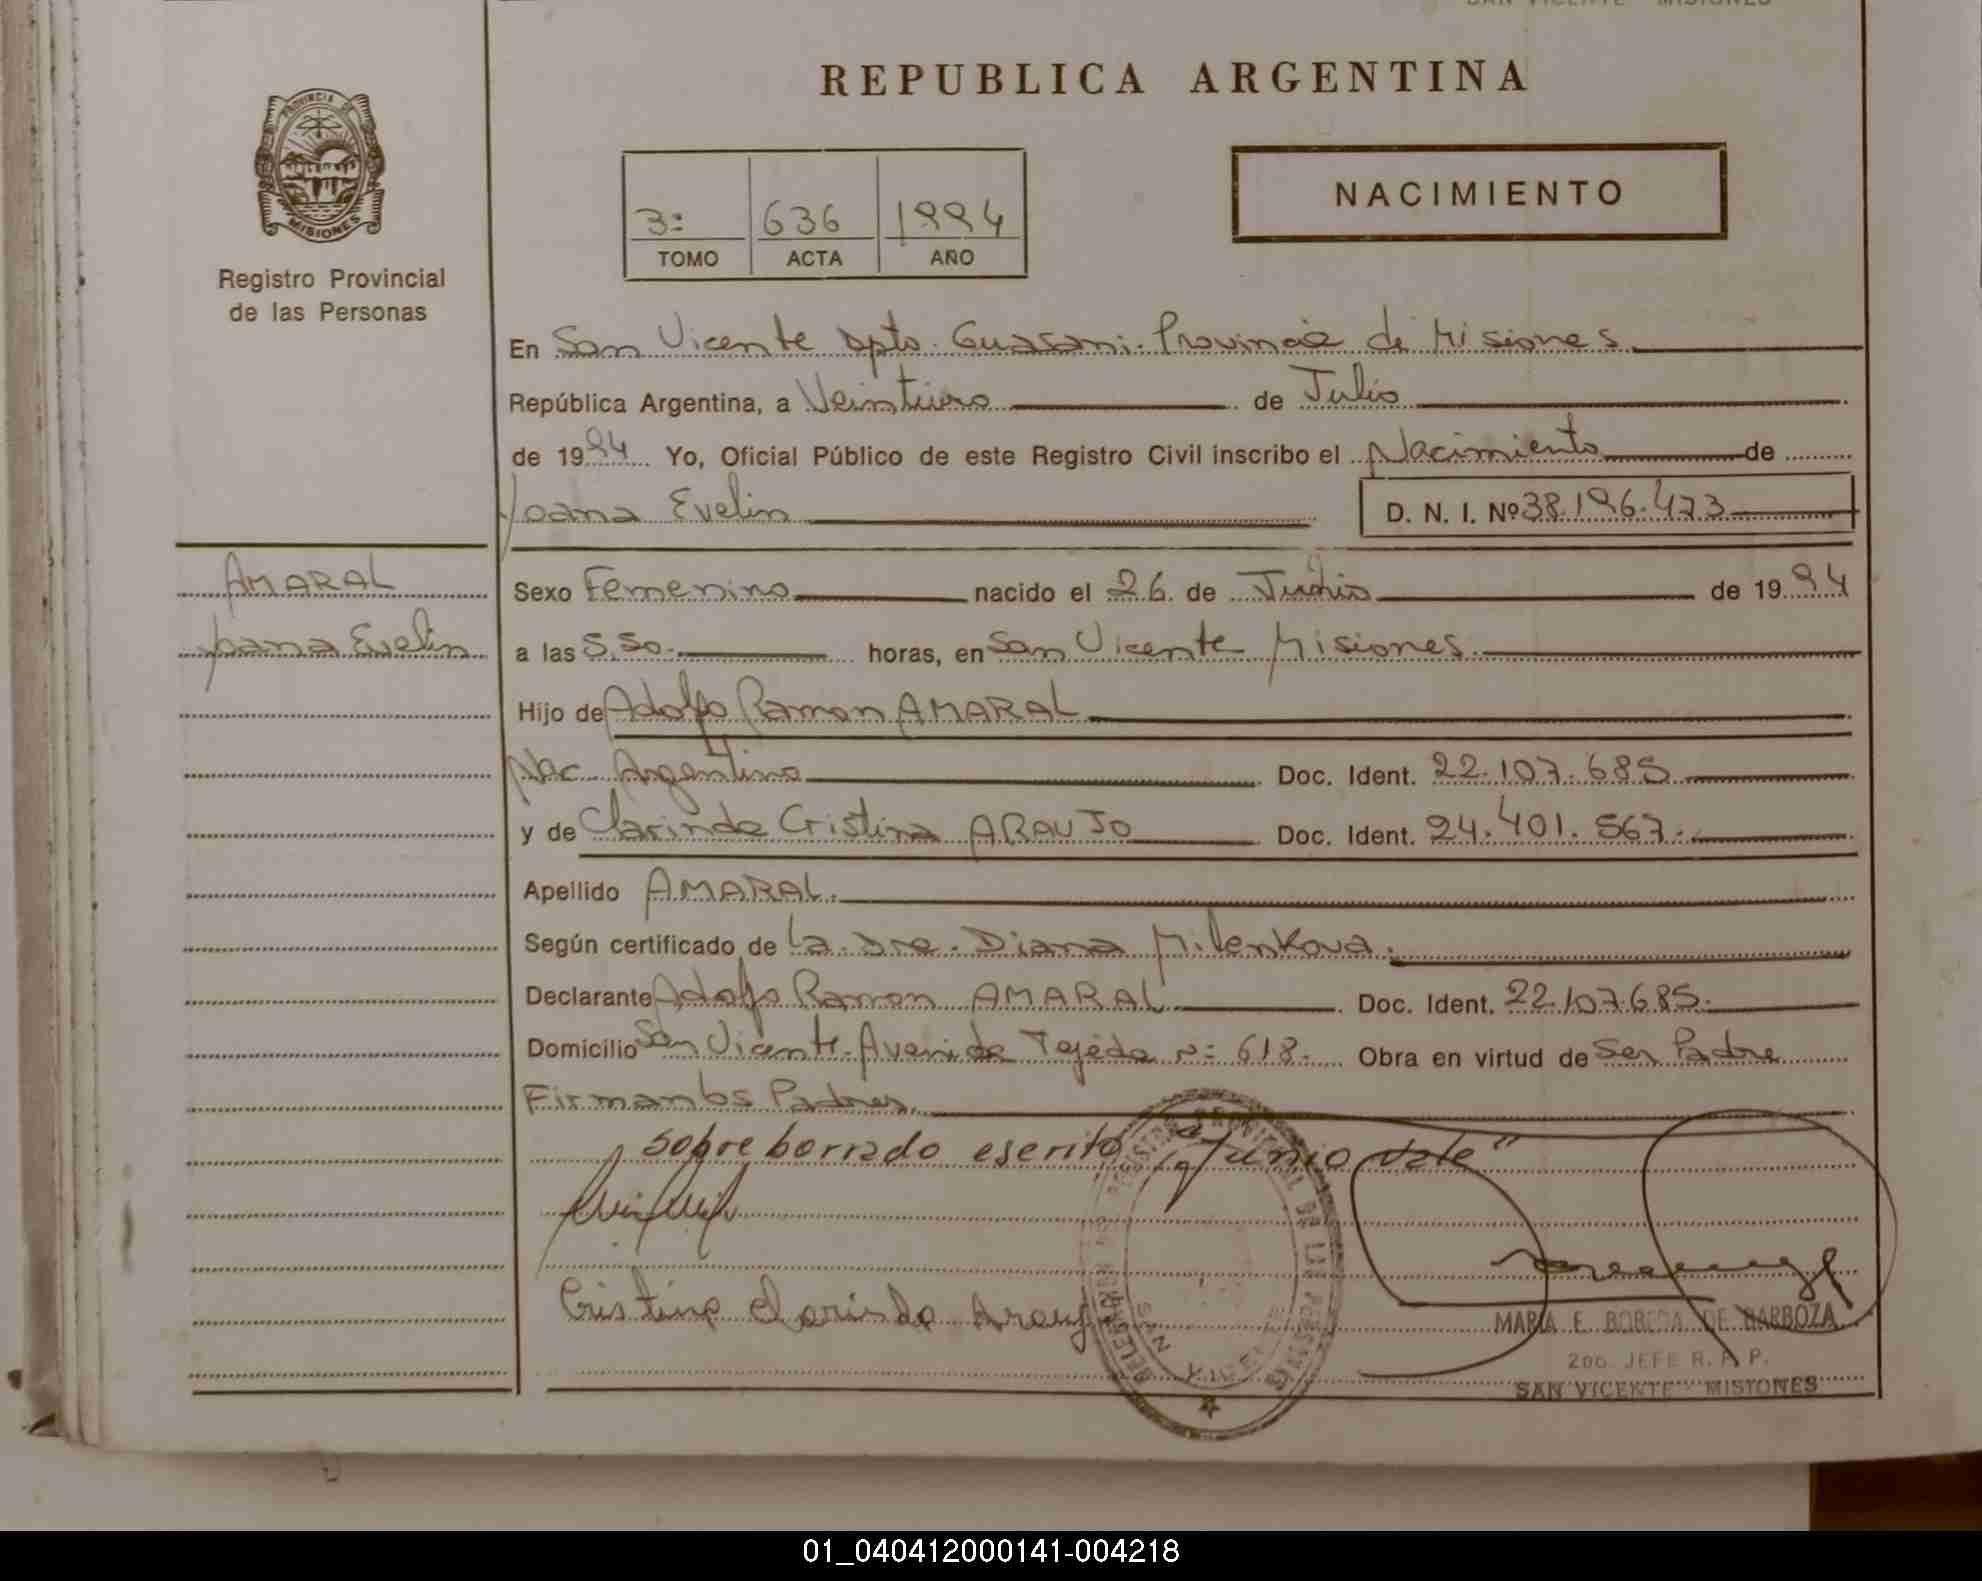 SAN VICENTE MISIONES
REPUBLICA ARGENTINA
PROVINCIA DE
MISIONES
Registro Provincial
de las Personas
3º 636 1994
TOMO ACTA AÑO
NACIMIENTO
En San Vicente Dpto. Guarani. Provincia de Misiones
República Argentina, a Veintiuno de Julio
de 1994 Yo, Oficial Público de este Registro Civil inscribo el Nacimiento de
Yoana Evelin D. N. I. Nº 38.196.473
AMARAL
Yoana Evelin
Sexo Femenino nacido el 26 de Junio de 1994
a las 5,50. horas, en San Vicente Misiones.
Hijo de Adolfo Ramon AMARAL
Nac. Argentino Doc. Ident. 22.107.685
y de Clarinda Cristina ARAUJO Doc. Ident. 24.401.567.
Apellido AMARAL.
Según certificado de La. Dra. Diana Milenkova.
Declarante Adolfo Ramon AMARAL Doc. Ident. 22.107.685.
Domicilio San Vicente. Avenida Tejeda nº 618. Obra en virtud de Ser Padre
Firman los Padres.
Sobre borrado escrito "Junio Vale"
Cristina Clarinda Arauj
REGISTRO PROVINCIAL DE LAS PERSONAS
SAN VICENTE
MARIA E. BOBEDA DE BARBOZA
2do. JEFE R. P. P.
SAN VICENTE MISIONES
01_040412000141-004218